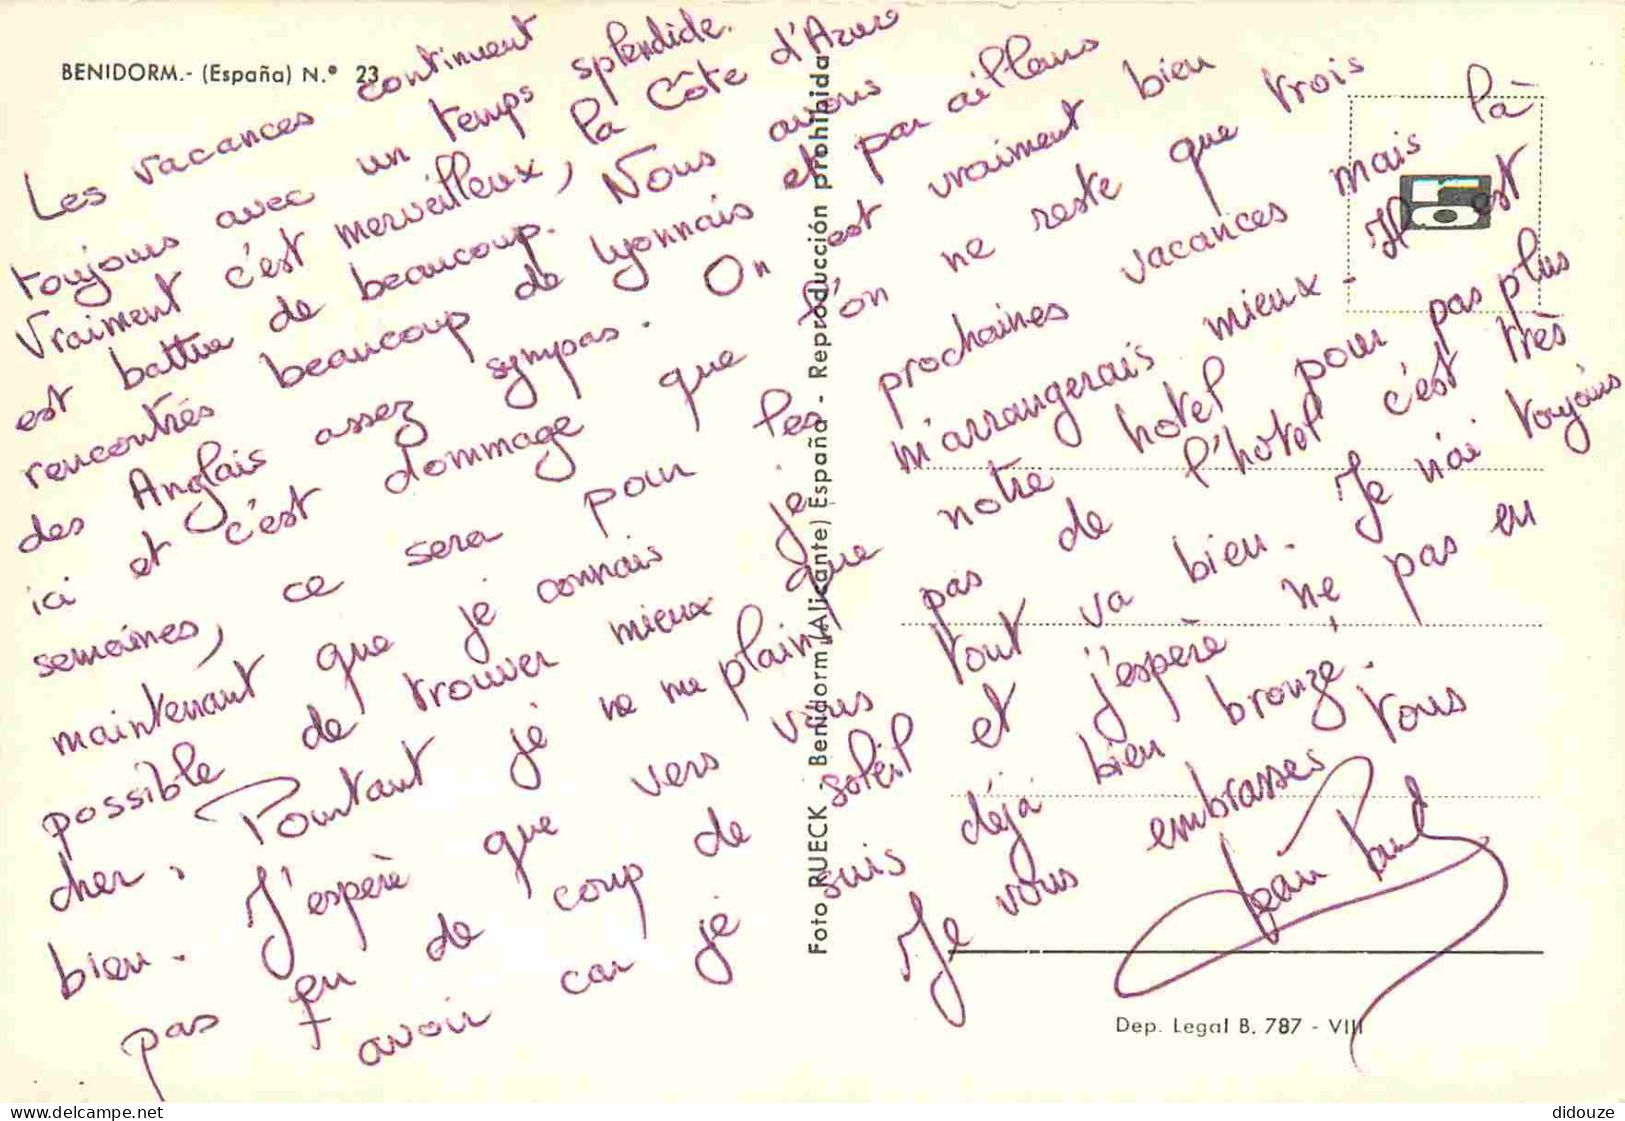 BENIDORM.- (España) N.º 23
Les vacances continuent
toujours avec un temps splendide.
Vraiment c'est merveilleux, la Côte d'Azur
est battue de beaucoup. Nous avons
rencontrés beaucoup de lyonnais et par ailleurs
des Anglais assez sympas. On est vraiment bien
ici et c'est dommage que l'on ne reste que trois
semaines, ce sera pour les prochaines vacances mais là
maintenant que je connais je m'arrangerais mieux - Il est
possible de trouver mieux que notre hotel pour pas plus
cher. Pourtant je ne me plains pas de l'hotel c'est très
bien. J'espère que vers vous tout va bien. Je n'ai toujours
pas eu de coup de soleil et j'espère ne pas en
avoir car je suis déjà bien bronzé.
Je vous embrasses tous
Jean Paul
Foto RUECK - Benidorm (Alicante) España - Reproducción prohibida
Dep. Legal B. 787 - VIII
www.delcampe.net
didouze